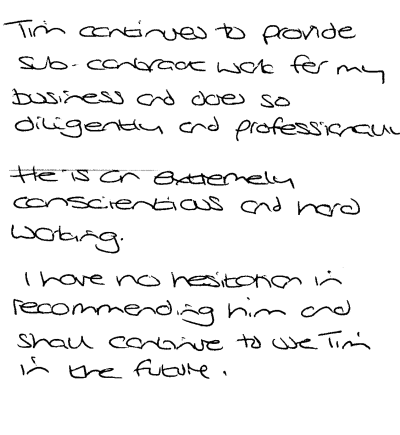 Tim continues to provide
sub-contract work for my
business and does so
diligently and professionally
He is an extremely
conscientious and hard
working.
I have no hesitation in
recommending him and
shall continue to use Tim
in the future.